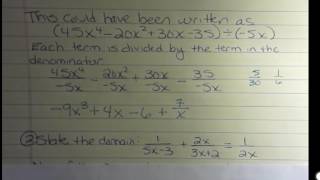 This could have been written as
(45x⁴-20x²+30x-35)÷(-5x)
Each term is divided by the term in the
denominator
45x⁴/-5x - 20x²/-5x + 30x/-5x - 35/-5x 5/30 1/6
-9x³+4x-6+7/x
② State the domain: 1/5x-3 + 2x/3x+2 = 1/2x